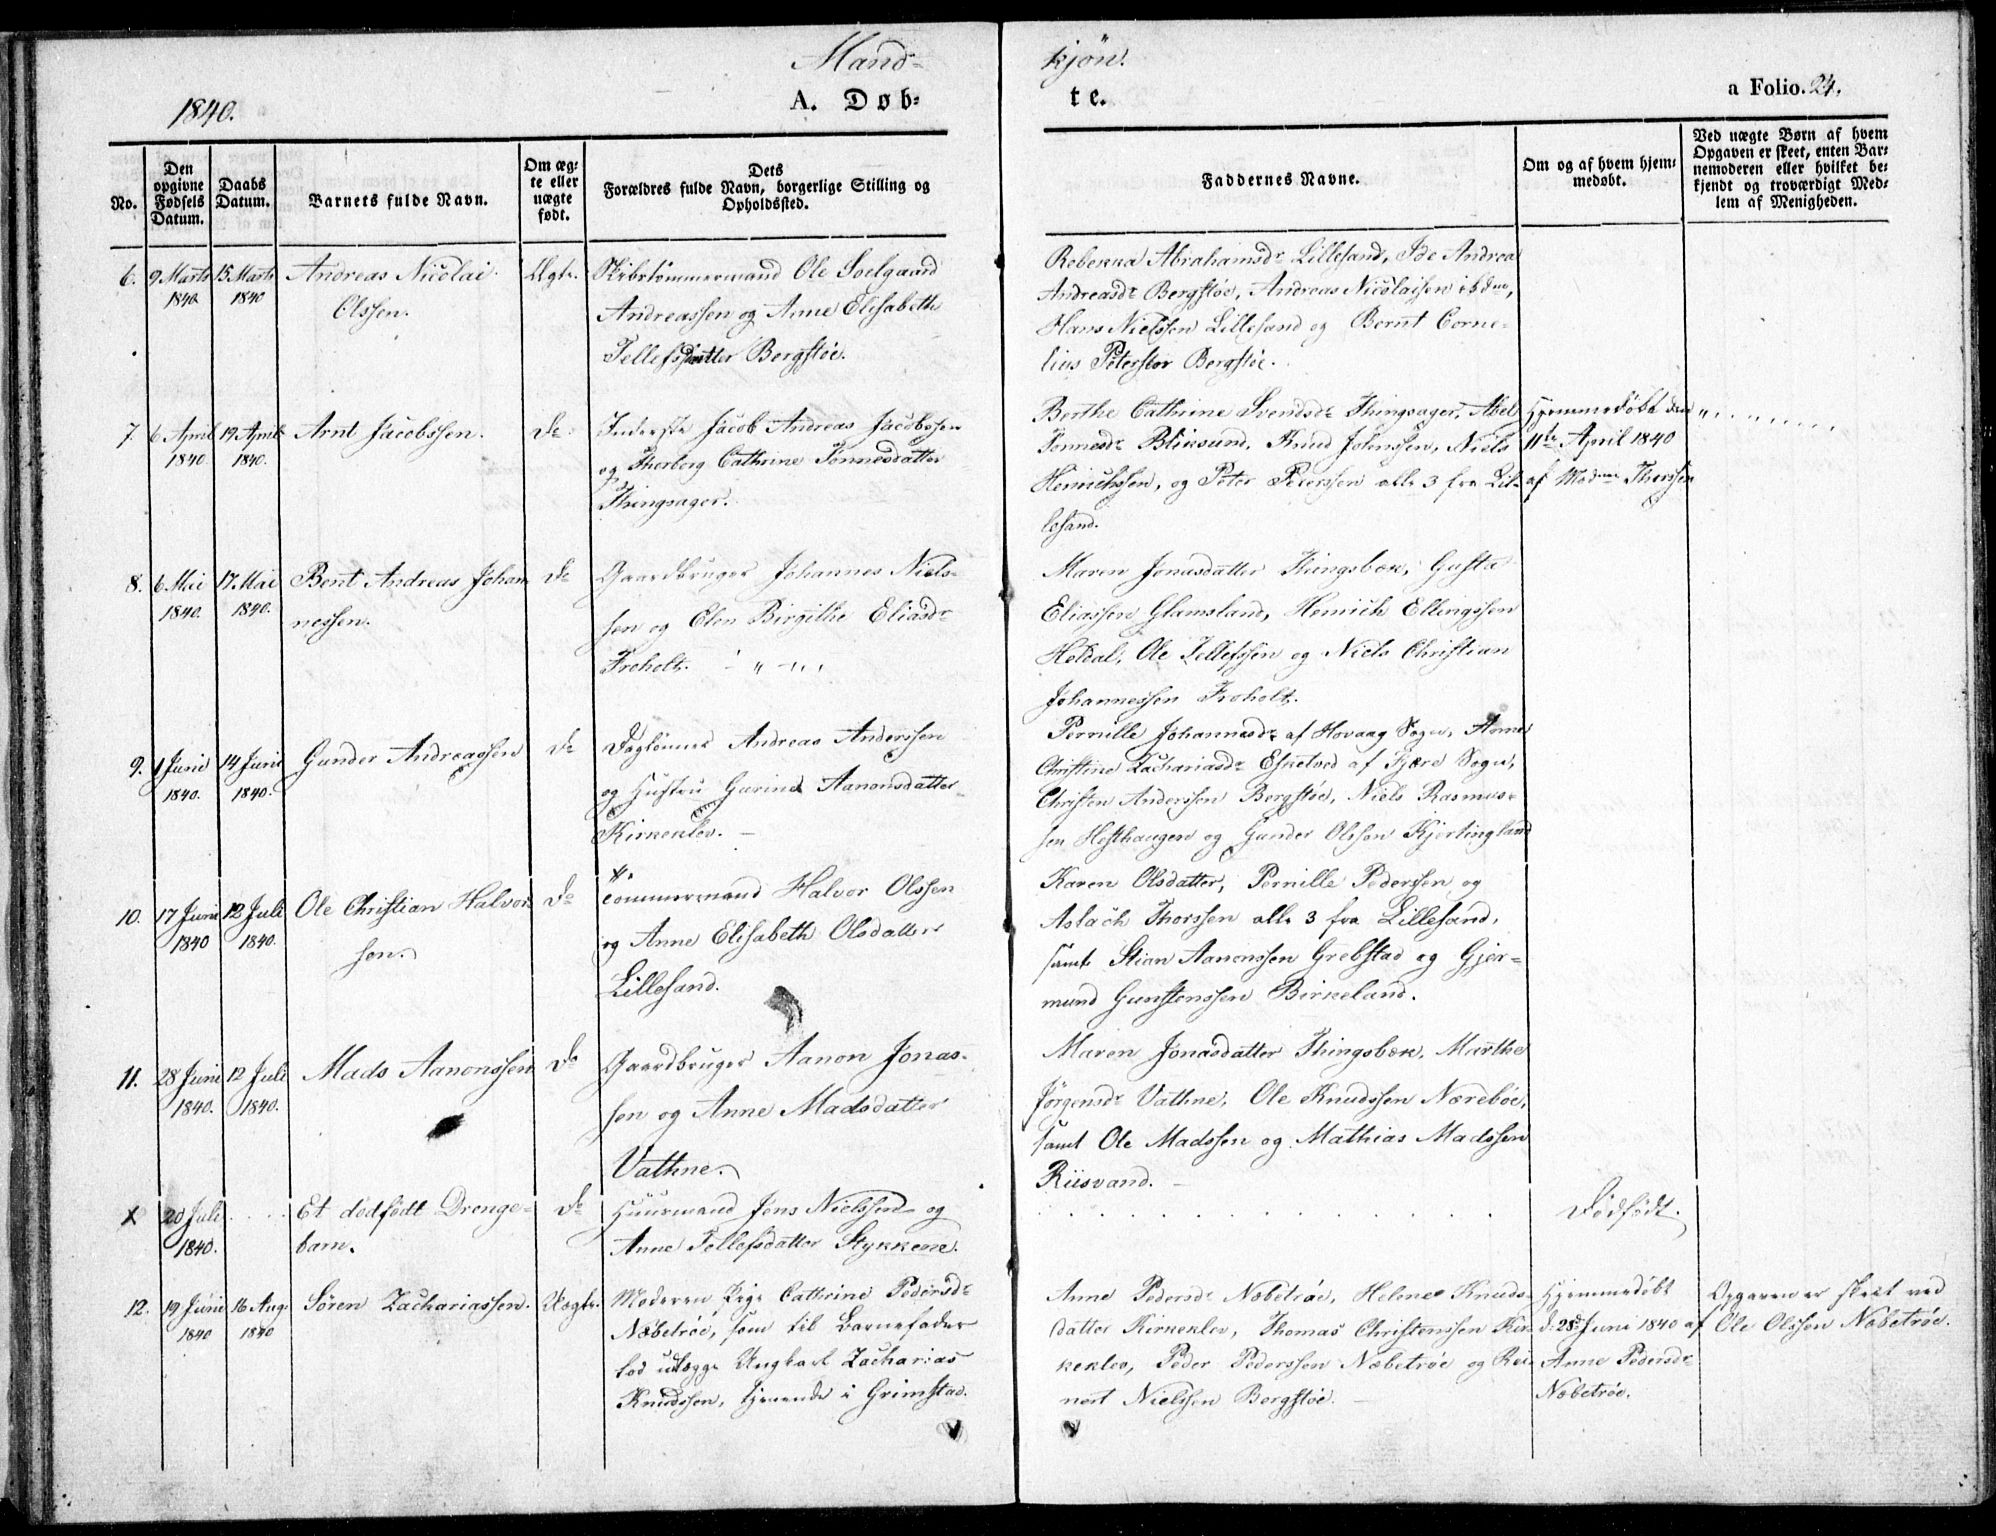 Mand-
kjön.
1840.
A. Døb-
te.
a Folio. 24.
No.
Den opgivne Fødsels Datum.
Daabs Datum.
Barnets fulde Navn.
Om ægte eller uægte født.
Dets Forældres fulde Navn, borgerlige Stilling og Opholdssted.
Faddernes Navne.
Om og af hvem hjemmedøbt.
Ved uægte Børn af hvem Opgaven er skeet, enten Barnemoderen eller hvilket bekjendt og troværdigt Medlem af Menigheden.
6. 9 Marts 1840 15 Marts 1840
Andreas Nicolai
Olssen.
Ægte.
Skibstömmermand Ole Soelgaard
Andreassen og Anne Elisabeth
Tellefsdatter Bergstöe.
Rebekka Abrahamsdr Lillesand, Ide Andrea
Andreasdr Bergstöe, Andreas Nicolaisen ibdm,
Hans Nielsen Lillesand og Bernt Corne-
lius Peterssen Bergstöe.
7. 6 April 1840 19 April 1840.
Arnt Jacobssen.
Do
Inderste Jacob Andreas Jacobssen
og Thorborg Cathrine Tönnesdatter
Thingsager.
Berthe Cathrine Svendsdr Thingsager, Abel
Tönnesdr Bliksund, Knud Johnssen, Niels
Henrichssen, og Peter Peterssen alle 3 fra Lil-
lesand.
Hjemmedöbt den
11te April 1840
af Madme Thorssen
8. 6 Mai 1840. 17 Mai 1840.
Bent Andreas Johan-
nessen.
Do
Gaardbruger Johannes Niels-
sen og Elen Birgithe Eliasdr
Froholt.
Maren Jonasdatter Thingsbæk, Gusta
Eliassen Glamsland, Henrich Ellingssen
Heldal, Ole Tellefssen og Niels Christian
Johannessen Froholt.
9. 1 Juni 1840. 14 Juni 1840.
Gunder Andreassen
Do
Daglönner Andreas Anderssen
og Hustru Gurine Aanonsdatter
Kirkeklev.
Pernille Johannesdr af Hövaag Sogn, Anne
Christine Zachariasdr Esketved af Fjære Sogn,
Christen Anderssen Bergstöe, Niels Rasmus-
sen Hesthaugen og Gunder Olssen Kjerlingland
10. 17 Juni 1840 12 Juli 1840.
Ole Christian Halvor-
sen.
Do
Tömmermand Halvor Olssen
og Anne Elisabeth Olsdatter
Lillesand.
Karen Olsdatter, Pernille Pederssen og
Aslach Thorssen alle 3 fra Lillesand,
samt Stian Aanonssen Grebstad og Gjer-
mund Gunstenssen Birkeland.
11. 28 Juni 1840. 12 Juli 1840.
Mads Aanonssen
Do
Gaardbruger Aanon Jonas-
sen og Anne Madsdatter
Vathne.
Maren Jonasdatter Thingsbæk, Marthe
Jörgensdr Vathne, Ole Knudssen Næreböe,
samt Ole Madssen og Mathias Madssen
Riisvand.
X 20 Juli 1840.
Et dödfödt Drenge-
barn.
Do
Huusmand Jens Nielssen og
Anne Tellefsdatter Stykkene.
Dödfödt.
12. 19 Juni 1840 16 Aug. 1840
Sören Zachariassen.
Uægte.
Moderen Pige Cathrine Pedersdr
Næbetröe, som til Barnefader
lod udlægge Ungkarl Zacharias
Knudssen, tjenende i Grimstad.
Anne Pedersdr Næbetröe, Helene Knuds-
datter Kirkeklev, Thomas Christenssen Kir-
keklev, Peder Pederssen Næbetröe og Rei-
nert Nielssen Bergstöe.
Hjemmedöbt
d: 28de Juni 1840 af
Anne Pedersdr
Næbetröe.
Opgaven er skeet ved
Ole Olssen Næbetröe.